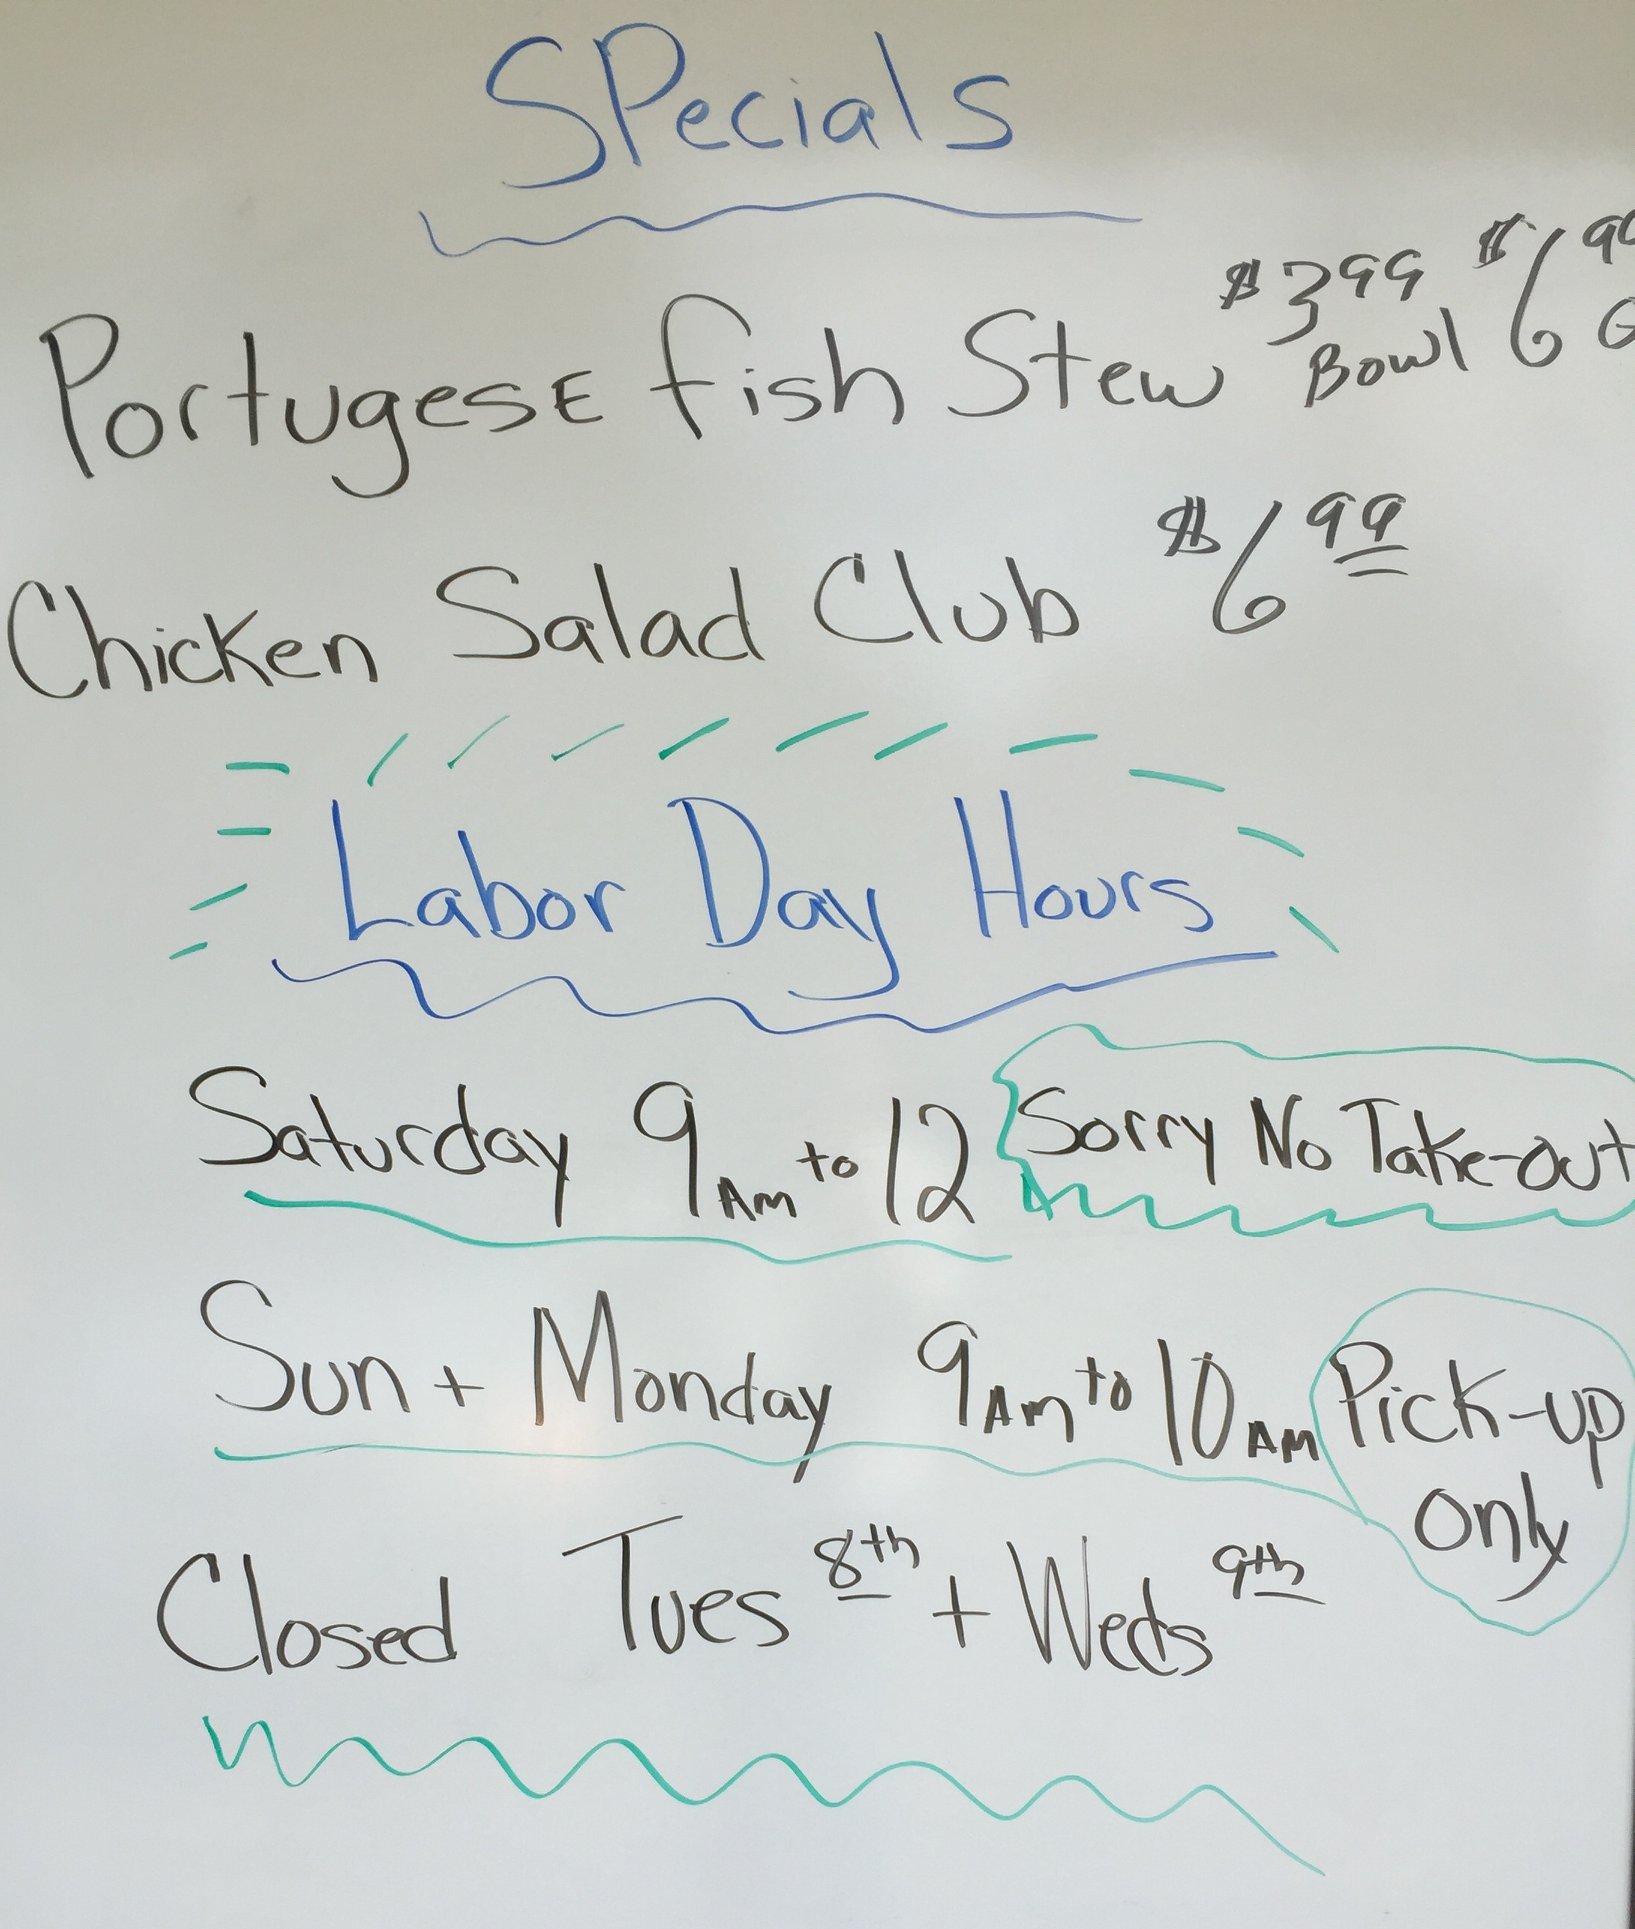 SPecials
PortugesE fish Stew $3.99 Bowl $6
Chicken Salad Club $6.99
Labor Day Hours
Saturday 9AM to 12 Sorry No Take-out
Sun + Monday 9AM to 10AM Pick-up
only
Closed Tues 8th + Weds 9th